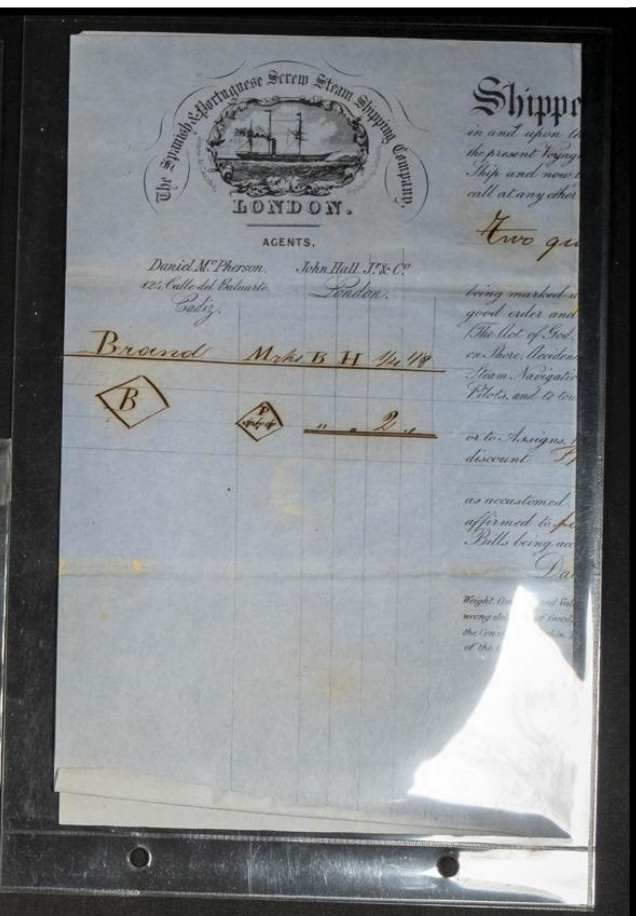 The Spanish & Portuguese Screw Steam Shipping Company.
LONDON.
AGENTS,
Daniel McPherson. John Hall Jr. & Co.
124, Calle del Baluarte. London.
Cadiz.
Brand Mrks B H 1/4 1/8
B P " " 2 "
Shippe
in and upon t
the present Voyag
Ship and now
call at any other
Two qu
being marked a
good order and
(The Act of God.
on Shore, Acciden
Steam Navigatio
Pilots, and to tow
or to Assigns,
discount
as accustomed.
affirmed to
Bills being acc
Da
Weight, Val
wrong de of Goods
the Cons
of the